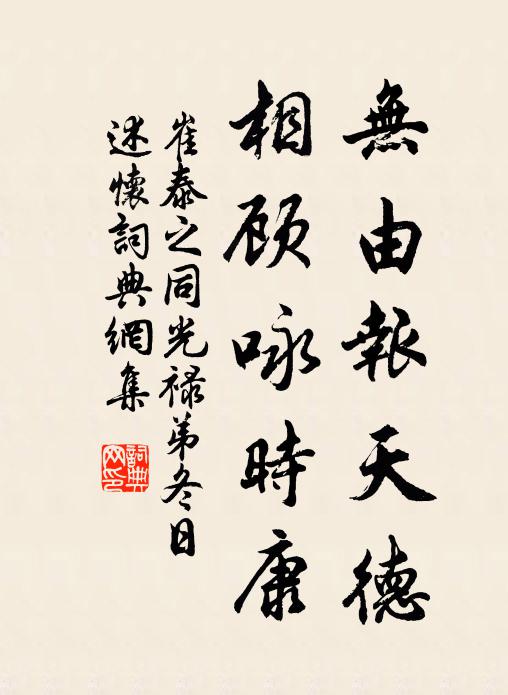 無由報天德
相顾咏時康
崔泰之同光禄弟冬日
述懷詞典網集
詞典
网印